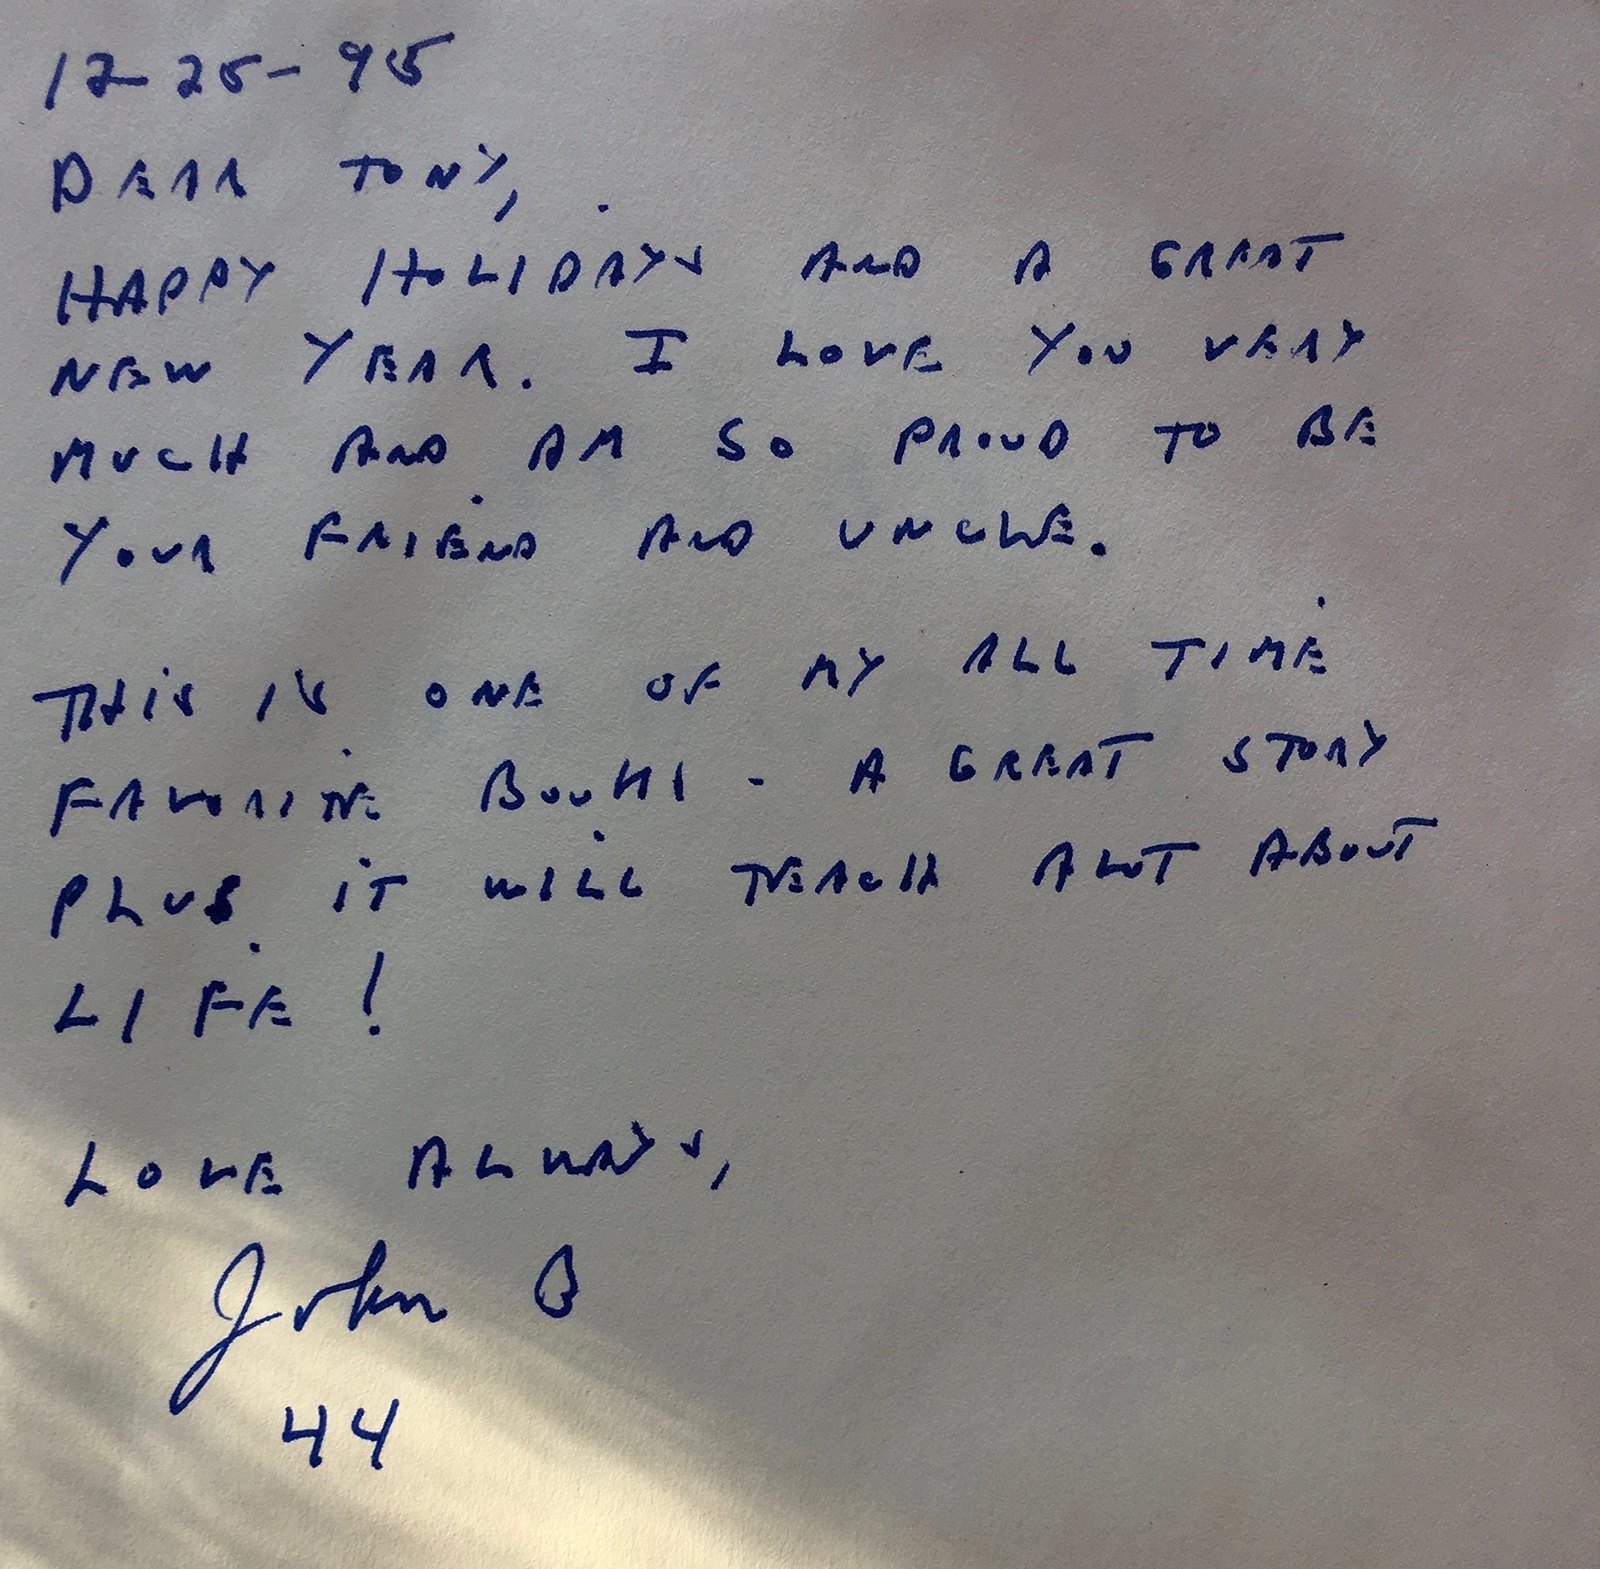 12-25-95
DEAR TONY,
HAPPY HOLIDAYS AND A GREAT
NEW YEAR. I LOVE YOU VERY
MUCH AND AM SO PROUD TO BE
YOUR FRIEND AND UNCLE.
THIS IS ONE OF MY ALL TIME
FAVORITE BOOKS - A GREAT STORY
PLUS IT WILL TEACH ALOT ABOUT
LIFE!
LOVE ALWAYS,
John B
44